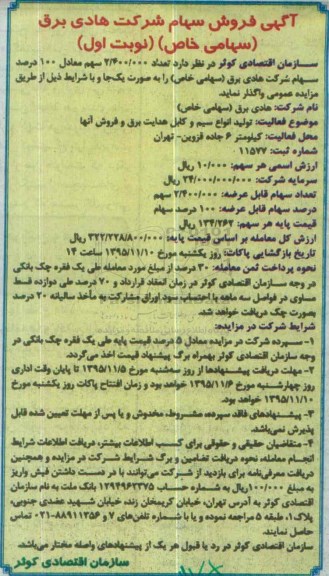 آگهی فروش سهام شرکت هادی برق
(سهامی خاص) (نوبت اول)
سازمان اقتصادی کوثر در نظر دارد تعداد ۲/۴۰۰/۰۰۰ سهم معادل ۱۰۰ درصد
سهام شرکت هادی برق (سهامی خاص) را به صورت یک‌جا و با شرایط ذیل از طریق
مزایده عمومی واگذار نماید.
نام شرکت: هادی برق (سهامی خاص)
موضوع فعالیت: تولید انواع سیم و کابل هدایت برق و فروش آنها
محل فعالیت: کیلومتر ۶ جاده قزوین- تهران
شماره ثبت: ۱۱۵۷۷
ارزش اسمی هر سهم: ۱۰/۰۰۰ ریال
سرمایه شرکت: ۲۴/۰۰۰/۰۰۰/۰۰۰ ریال
تعداد سهام قابل عرضه: ۲/۴۰۰/۰۰۰ سهم
درصد سهام قابل عرضه: ۱۰۰ درصد سهام
قیمت پایه هر سهم: ۱۳۴/۲۶۲ ریال
ارزش کل معامله بر اساس قیمت پایه: ۳۲۲/۲۲۸/۸۰۰/۰۰۰ ریال
تاریخ بازگشایی پاکات: روز یکشنبه مورخ ۱۳۹۵/۱۱/۱۰ ساعت ۱۴
نحوه پرداخت ثمن معامله: ۳۰ درصد از مبلغ مورد معامله طی یک فقره چک بانکی
در وجه سازمان اقتصادی کوثر در زمان انعقاد قرارداد و ۷۰ درصد طی دوازده قسط
مساوی در فواصل سه ماهه با احتساب سود اوراق مشارکت به مأخذ سالیانه ۲۰ درصد
بصورت چک دریافت خواهد شد.
شرایط شرکت در مزایده:
۱- سپرده شرکت در مزایده معادل ۵ درصد قیمت پایه طی یک فقره چک بانکی در
وجه سازمان اقتصادی کوثر بهمراه برگ پیشنهاد قیمت اخذ می‌گردد.
۲- مهلت دریافت پیشنهادها از روز سه‌شنبه مورخ ۱۳۹۵/۱۱/۵ تا پایان وقت اداری
روز چهارشنبه مورخ ۱۳۹۵/۱۱/۶ خواهد بود و زمان افتتاح پاکات روز یکشنبه مورخ
۱۳۹۵/۱۱/۱۰ خواهد بود.
۳- پیشنهادهای فاقد سپرده، مشروط، مخدوش و یا پس از مهلت تعیین شده قابل
پذیرش نمی‌باشد.
۴- متقاضیان حقیقی و حقوقی برای کسب اطلاعات بیشتر، دریافت اطلاعات شرایط
انجام معامله، نحوه دریافت تضامین و برگ شرایط شرکت در مزایده و همچنین
دریافت معرفی‌نامه برای بازدید از شرکت می‌توانند با در دست داشتن فیش واریز
به مبلغ ۱۰۰/۰۰۰ ریال به شماره حساب ۱۲۹۴۹۶۳۳۷۵ بانک ملت به نام سازمان
اقتصادی کوثر به آدرس تهران، خیابان کریمخان زند، خیابان شهید عضدی جنوبی،
پلاک ۱، طبقه ۵ مراجعه نموده و یا با شماره تلفن‌های ۷ و ۸۸۹۱۱۳۵۶-۰۲۱ تماس
حاصل نمایند.
سازمان اقتصادی کوثر در رد یا قبول هر یک از پیشنهادهای واصله مختار می‌باشد.
سازمان اقتصادی کوثر